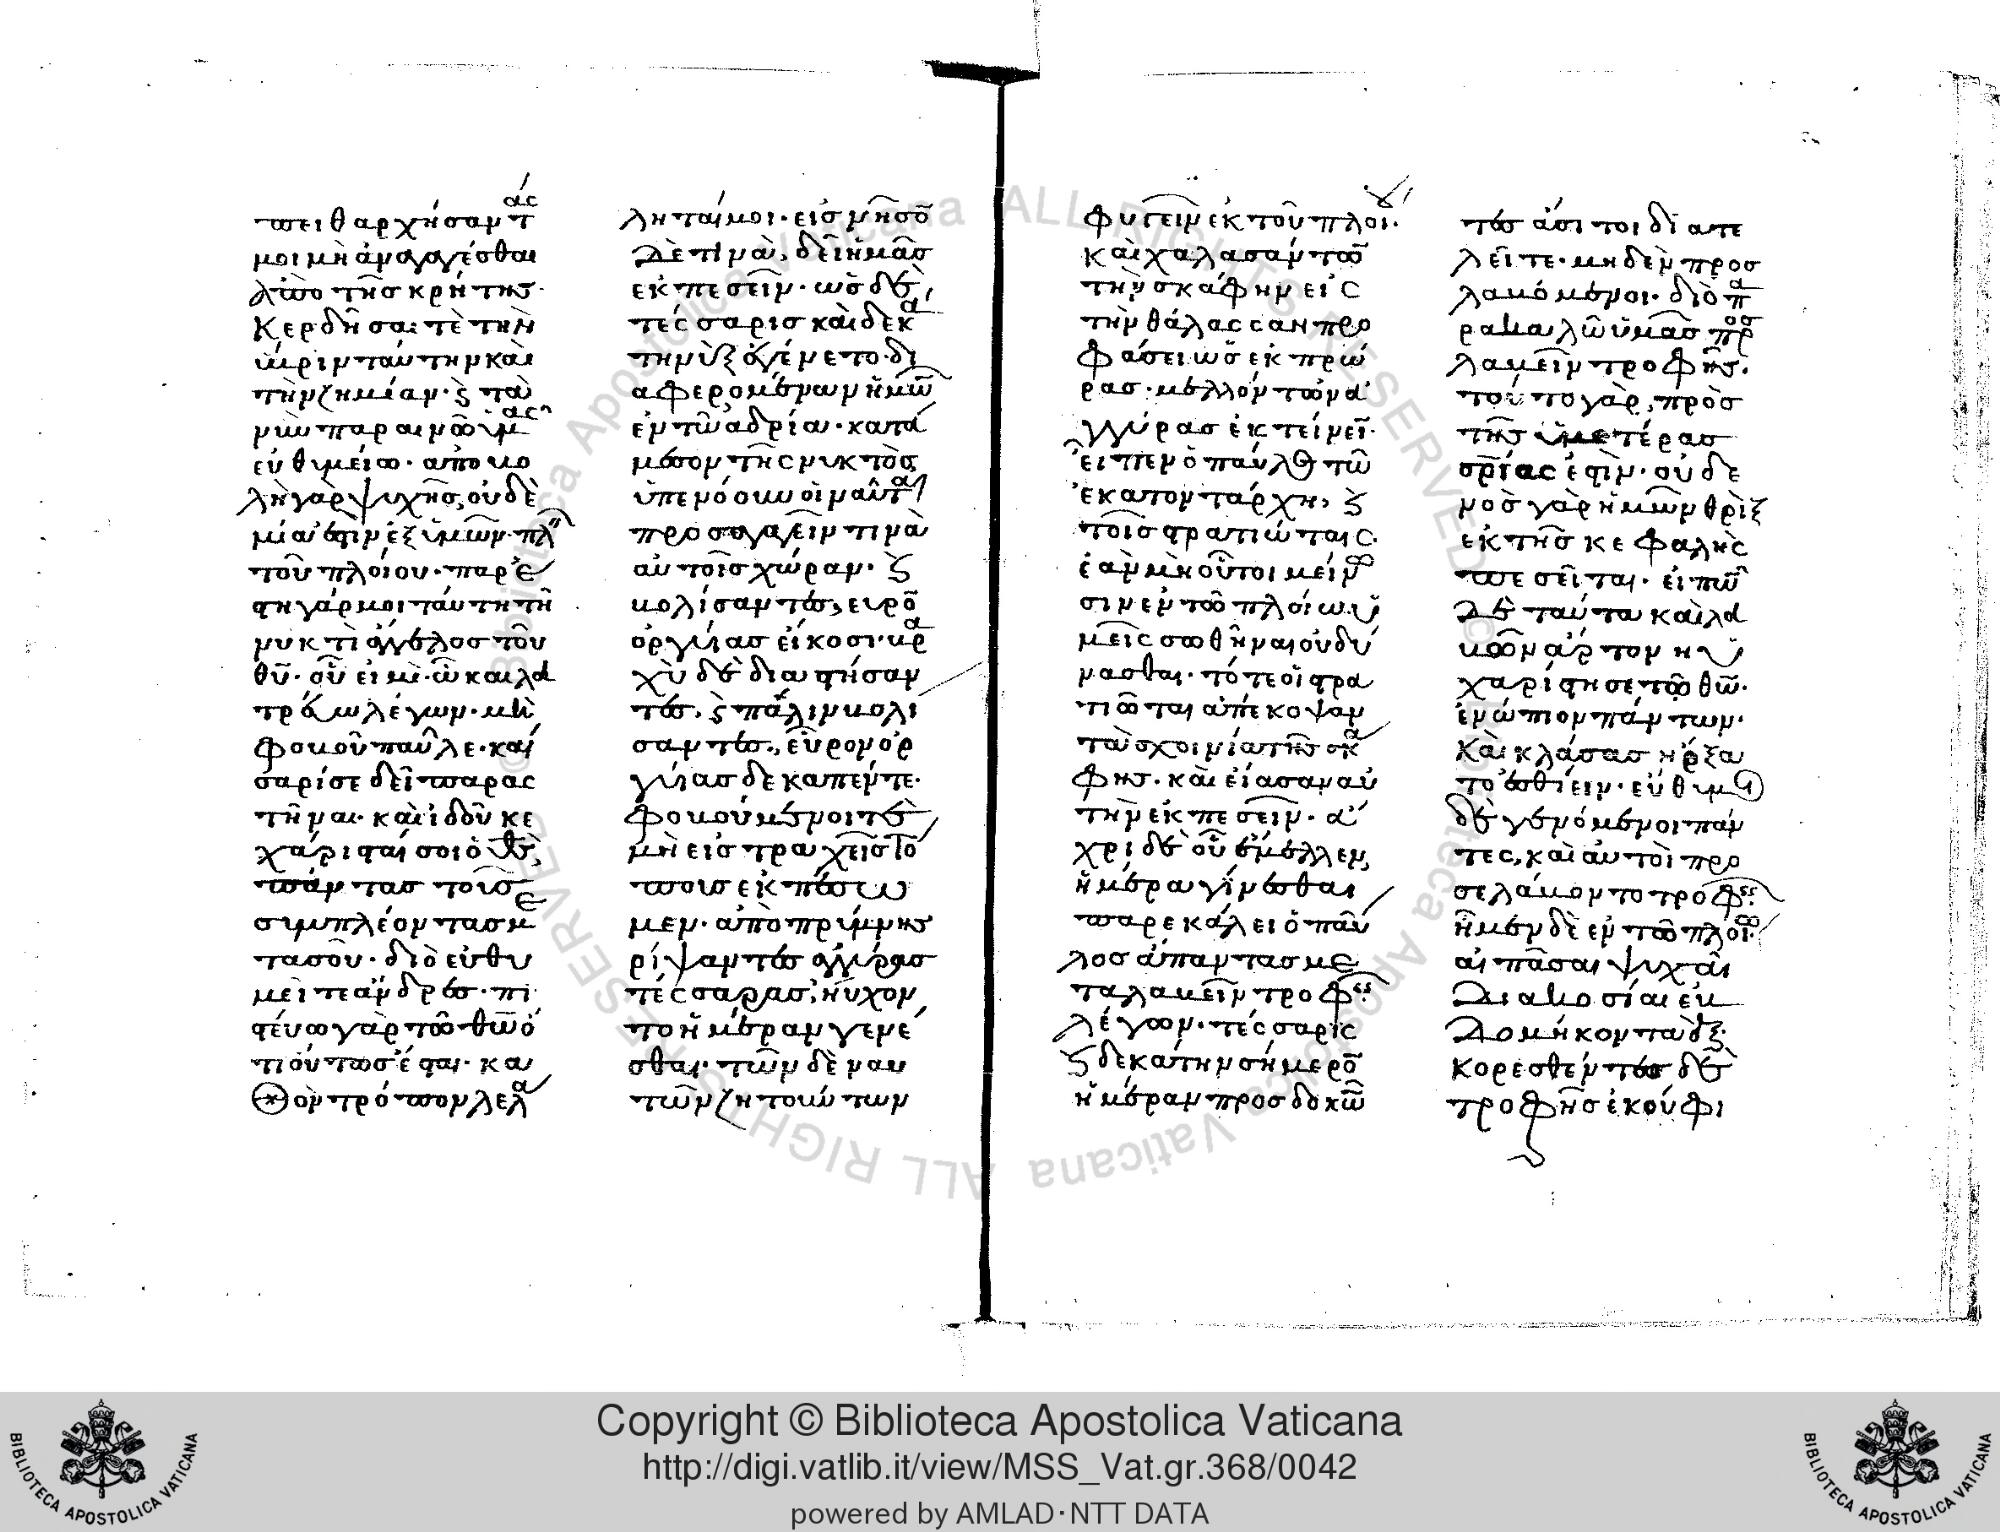 πειθαρχήσαντάς
μοι μὴ ἀναγαγέσθαι
ἀπὸ τῆς κρήτης·
κερδῆσαι τὲ τὴν
ὕβριν ταύτην καὶ
τὴν ζημίαν· ϗ τὰ
νῦν παραινῶ ὑμᾶς
εὐθυμεῖν· ἀποβο
λὴ γὰρ ψυχῆς, οὐδὲ
μία ἐστὶν ἐξ ὑμῶν· πλὴν
τοῦ πλοίου· παρέ
στη γάρ μοι ταύτη τῆ
νυκτὶ ἄγγελος τοῦ
θυ· οὗ εἰμὶ· ὧ καὶ λα
τρεύω λέγων· μὴ
φοβοῦ παῦλε· καί
σαρί σε δεῖ παρας
τῆναι· καὶ ἰδοῦ κε
χάρισταί σοι ὁ θς,
πάντας τοὺς
συμπλέοντας με
τὰ σοῦ· διὸ εὐθυ
μεῖτε ἄνδρες· πι
στεύω γὰρ τῶ θῶ ὅ
τι οὕτως ἔσται· κα
θ ὃν τρόπον λελά
ληταί μοι· εἰς νῆσον
δὲ τινὰ, δεῖ ἡμᾶς
ἐκπεσεῖν· ὡς δὲ
τέσσαρισκαιδεκά
τη νὺξ ἐγένετο· δι
αφερομένων ἡμῶν
ἐν τῶ ἀδρία· κατὰ
μέσον τῆς νυκτὸς,
ὑπενόουν οἱ ναῦται
προσαγαγεῖν τινὰ
αὐτοῖς χώραν· ϗ
βολίσαντες, εὗρον
ὀργυίας εἴκοσι· βρα
χὺ δὲ διαστήσαν
τες, ϗ πάλιν βολι
σαντες, εὗρον ὀρ
γυίας δεκαπέντε·
φοβούμενοι τὲ
μὴ εἰς τραχεῖς τό
πους ἐκπέσω
μεν· ἀπὸ πρύμνης
ρίψαντες ἀγκύρας
τέσσαρας, ηὔχον
το ἡμέραν γενέ
σθαι· τῶν δὲ ναυ
τῶν ζητούντων
φυγεῖν ἐκ τοῦ πλοίου·
καὶ χαλασάντων
τὴν σκάφην εἰς
τὴν θάλασσαν προ
φάσει ὡς ἐκ πρώ
ρας· μελλόντων ἀ
γκύρας ἐκτείνειν·
εἶπεν ὁ παῦλος τῶ
ἑκατοντάρχη, ϗ
τοῖς στρατιώταις·
ἐὰν μὴ οὗτοι μείνω
σιν ἐν τῶ πλοίω ὑ
μεῖς σωθῆναι οὐ δύ
νασθαι· τότε οἱ στρα
τιῶται ἀπέκοψαν
τὰ σχοινία τῆς σκά
φης· καὶ εἴασαν αὐ
τὴν ἐκπεσεῖν· ἄ
χρι δὲ οὗ ἔμελλεν,
ἡμέρα γίνεσθαι
παρεκάλει ὁ παῦ
λος ἅπαντας με
ταλαβεῖν τροφῆς·
λέγων· τέσσαρις
ϗ δεκάτην σήμερον
ἡμέραν προσδοκῶν
τες ἄσιτοι διατε
λεῖτε· μηδὲν προσ
λαβόμενοι· διὸ πα
ρακαλῶ ὑμᾶς προσ
λαβεῖν τροφῆς·
τοῦτο γὰρ, πρὸς
τῆς ὑμετέρας
σρίας ἐστὶν· οὐδε
νὸς γὰρ ἡμῶν θρὶξ
ἐκ τῆς κεφαλῆς
πεσεῖται· εἰπὼν
δὲ ταῦτα καὶ λα
βὼν ἄρτον ηὐ
χαρίστησε τῶ θῶ·
ἐνώπιον πάντων·
καὶ κλάσας ἤρξα
το ἐσθίειν· εὔθυμοι
δὲ γενόμενοι πάν
τες, καὶ αὐτοὶ προ
σελάβοντο τροφῆς·
ἦμεν δὲ ἐν τῶ πλοίω·
αἱ πᾶσαι ψυχαὶ
διακοσίαι ἑβ
δομήκοντα ἕξ·
κορεσθέντες δὲ
τροφῆς ἐκούφι
Copyright © Biblioteca Apostolica Vaticana
http://digi.vatlib.it/view/MSS_Vat.gr.368/0042
powered by AMLAD·NTT DATA
BIBLIOTECA APOSTOLICA VATICANA
BIBLIOTECA APOSTOLICA VATICANA